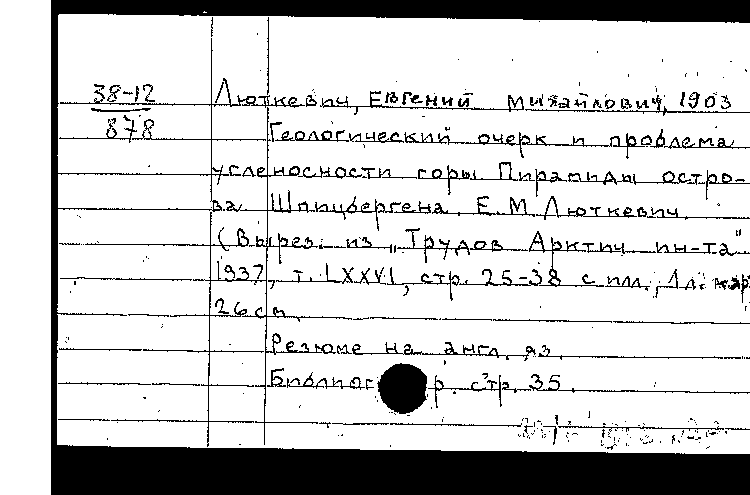 38-12
878
Люткевич, Евгений Михайлович, 1903
Геологический очерк и проблема
угленосности горы Пирамиды остро-
ва Шпицбергена. Е.М. Люткевич.
(Вырез. из „Трудов Арктич. ин-та"
1937, т. LXXVI, стр. 25-38 с илл., 1 л. кар
26 см.
Резюме на англ. яз.
Библиогр. стр. 35.